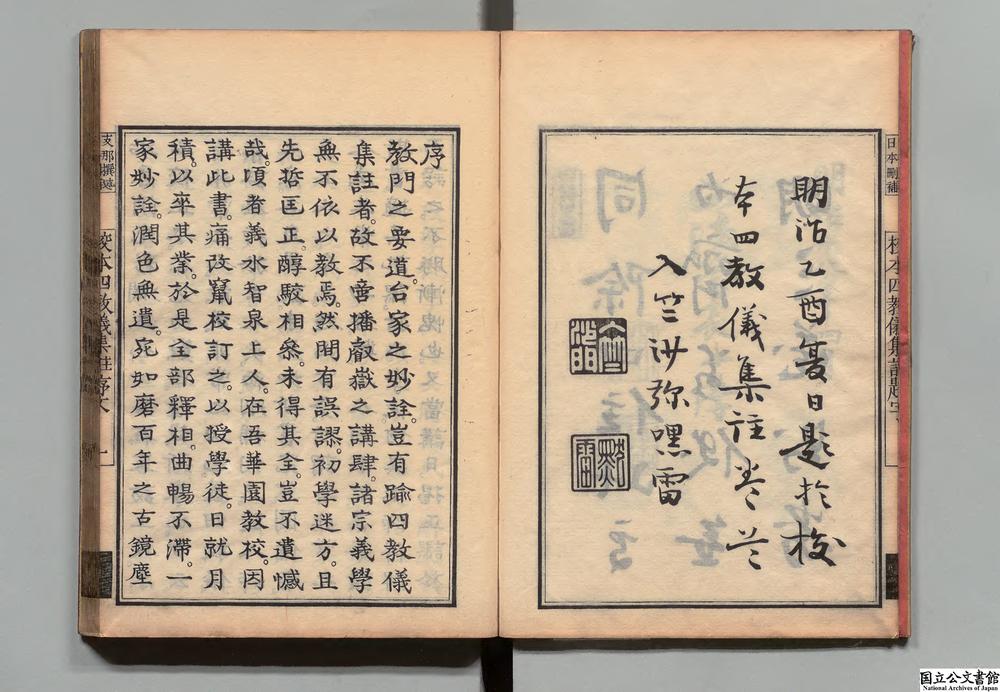 日本刪補
明治乙酉夏日題於校
本四教儀集註卷
入竺沙弥嘿雷
默雷
序
教門之要道。台家之妙詮。豈有踰四教儀
集註者。故不啻播叡嶽之講肆。諸宗義學
無不依以教焉。然間有誤謬。初學迷方。且
先哲匡正。醇駁相參。未得其全。豈不遺憾
哉。頃者義水智泉上人。在吾華園教校。因
講此書。痛改竄校訂之。以授學徒。日就月
積。以卒其業。於是全部釋相。曲暢不滯。一
家妙詮。潤色無遺。宛如磨百年之古鏡塵
支那撰述
校本四教儀集註序文 一
国立公文書館
National Archives of Japan